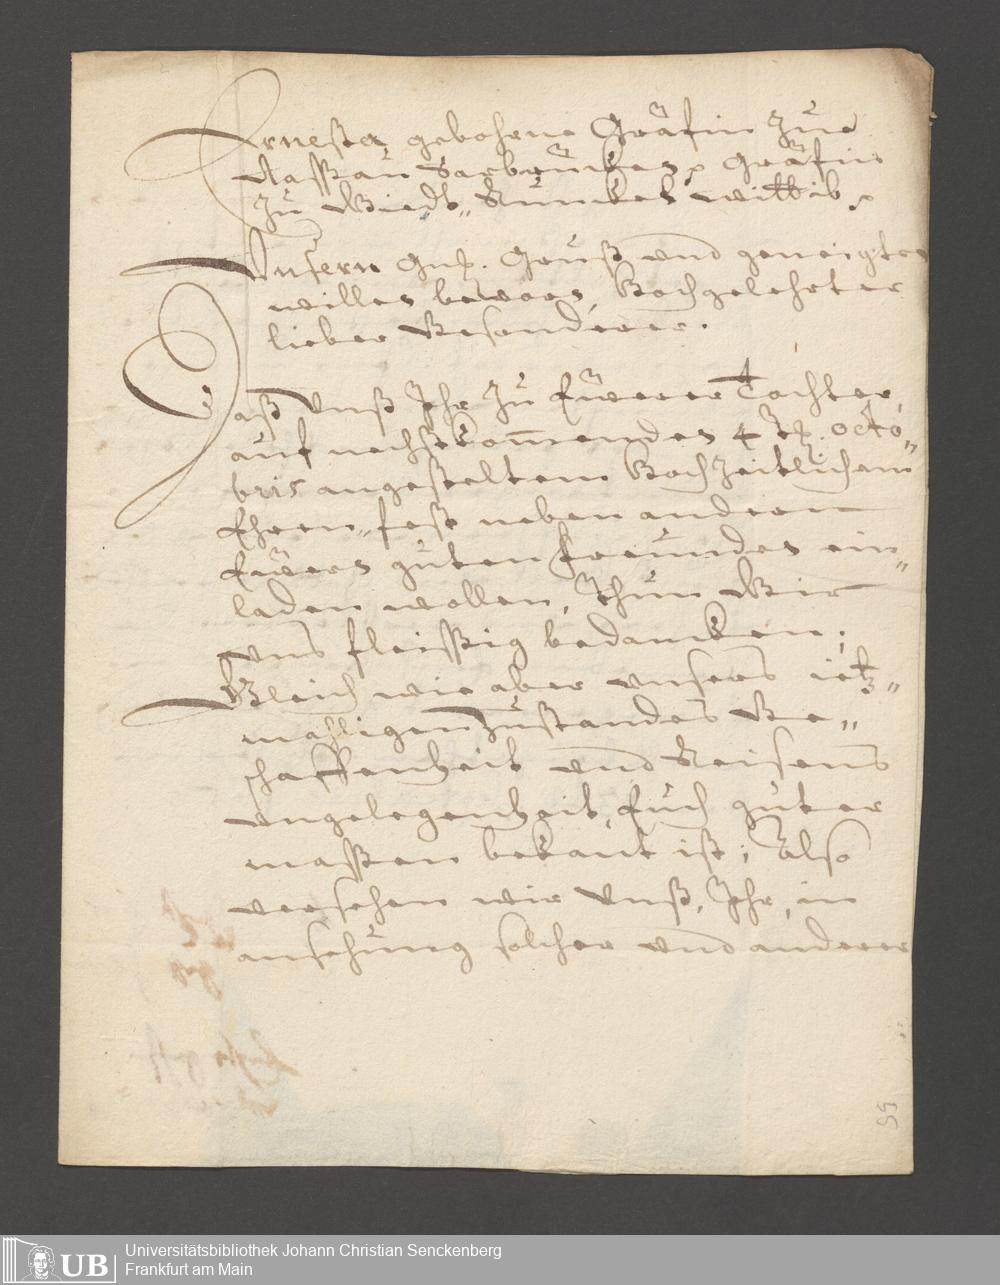 Ernesta, gebohrne Gräfin Zue
Naßau Sarbrücken, Gräfin
zu Wiedt, Runckel wittib.
Unsern gnd. Gruß und geneigten
willen bevorn, Hochgelehrter
lieber Besonderer.
Daß Unß Ihr zu Ewerer Tochter,
auf nechstkommendes 4 octo„
bris angesteltem Hochzeitlichem
Ehren„fest neben andern
Ewers guten Freundes ein„
laden wollen, Thun Wir
Uns fleissig bedancken;
Gleich wie aber unsers ietz„
mahligen Zustandes Be„
schaffenheit und Reisens
ungelegenheit, Euch guter
massen bekant ist; Also
versehen wir Unß, Ihr, in
ansehung solcher und anderer
99
UB
Universitätsbibliothek Johann Christian Senckenberg
Frankfurt am Main